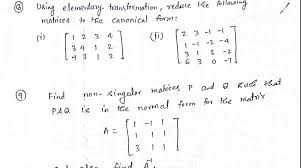 ⑧ Using elementary transfromation, reduce the following
matrices to the canonical form:
(i) [ 1 2 3 4 (ii) [ 2 3 -1 -1
3 4 1 2 1 -1 -2 -4
4 3 1 2 ] 3 1 3 -2
6 3 0 -7 ]
⑨ Find non-singular matrices P and Q such that
PAQ is in the normal form for the matrix
A = [ 1 -1 1
1 1 1
3 1 1 ]
also find A⁻¹